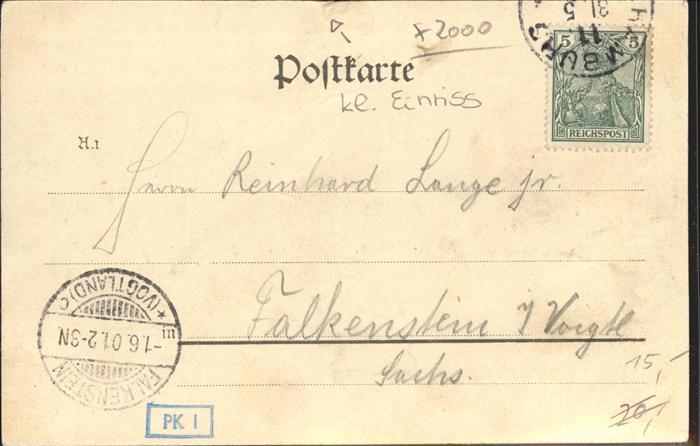 * 2000
Postkarte
kl. Einriss
5 5
REICHSPOST
HAMBURG
31.5
11
A.1
Herrn Reinhard Lange jr.
Falkenstein i/Voigtl
Sachs.
FALKENSTEIN
*(VOGTLAND) c
III
-1.6.01.2-3N
PK I
15,-
20,-